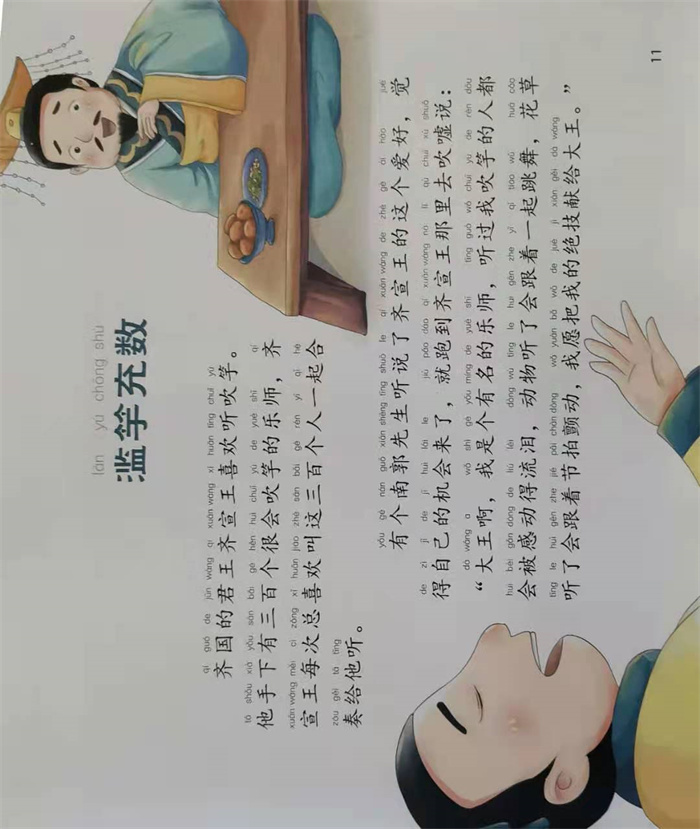 làn yú chōng shù
滥竽充数
qí guó de jūn wáng qí xuān wáng xǐ huān tīng chuī yú
齐国的君王齐宣王喜欢听吹竽。
tā shǒu xià yǒu sān bǎi gè hěn huì chuī yú de yuè shī qí
他手下有三百个很会吹竽的乐师，齐
xuān wáng měi cì zǒng xǐ huān jiào zhè sān bǎi gè rén yì qǐ hé
宣王每次总喜欢叫这三百个人一起合
zòu gěi tā tīng
奏给他听。
yǒu gè nán guō xiān shēng tīng shuō le qí xuān wáng de zhè gè ài hào jué
有个南郭先生听说了齐宣王的这个爱好，觉
de zì jǐ de jī huì lái le jiù pǎo dào qí xuān wáng nà lǐ qù chuī xū shuō
得自己的机会来了，就跑到齐宣王那里去吹嘘说：
dà wáng a wǒ shì gè yǒu míng de yuè shī tīng guò wǒ chuī yú de rén dōu
“大王啊，我是个有名的乐师，听过我吹竽的人都
huì bèi gǎn dòng de liú lèi dòng wù tīng le huì gēn zhe yì qǐ tiào wǔ huā cǎo
会被感动得流泪，动物听了会跟着一起跳舞，花草
tīng le huì gēn zhe jié pāi chàn dòng wǒ yuàn bǎ wǒ de jué jì xiàn gěi dà wáng
听了会跟着节拍颤动，我愿把我的绝技献给大王。”
11